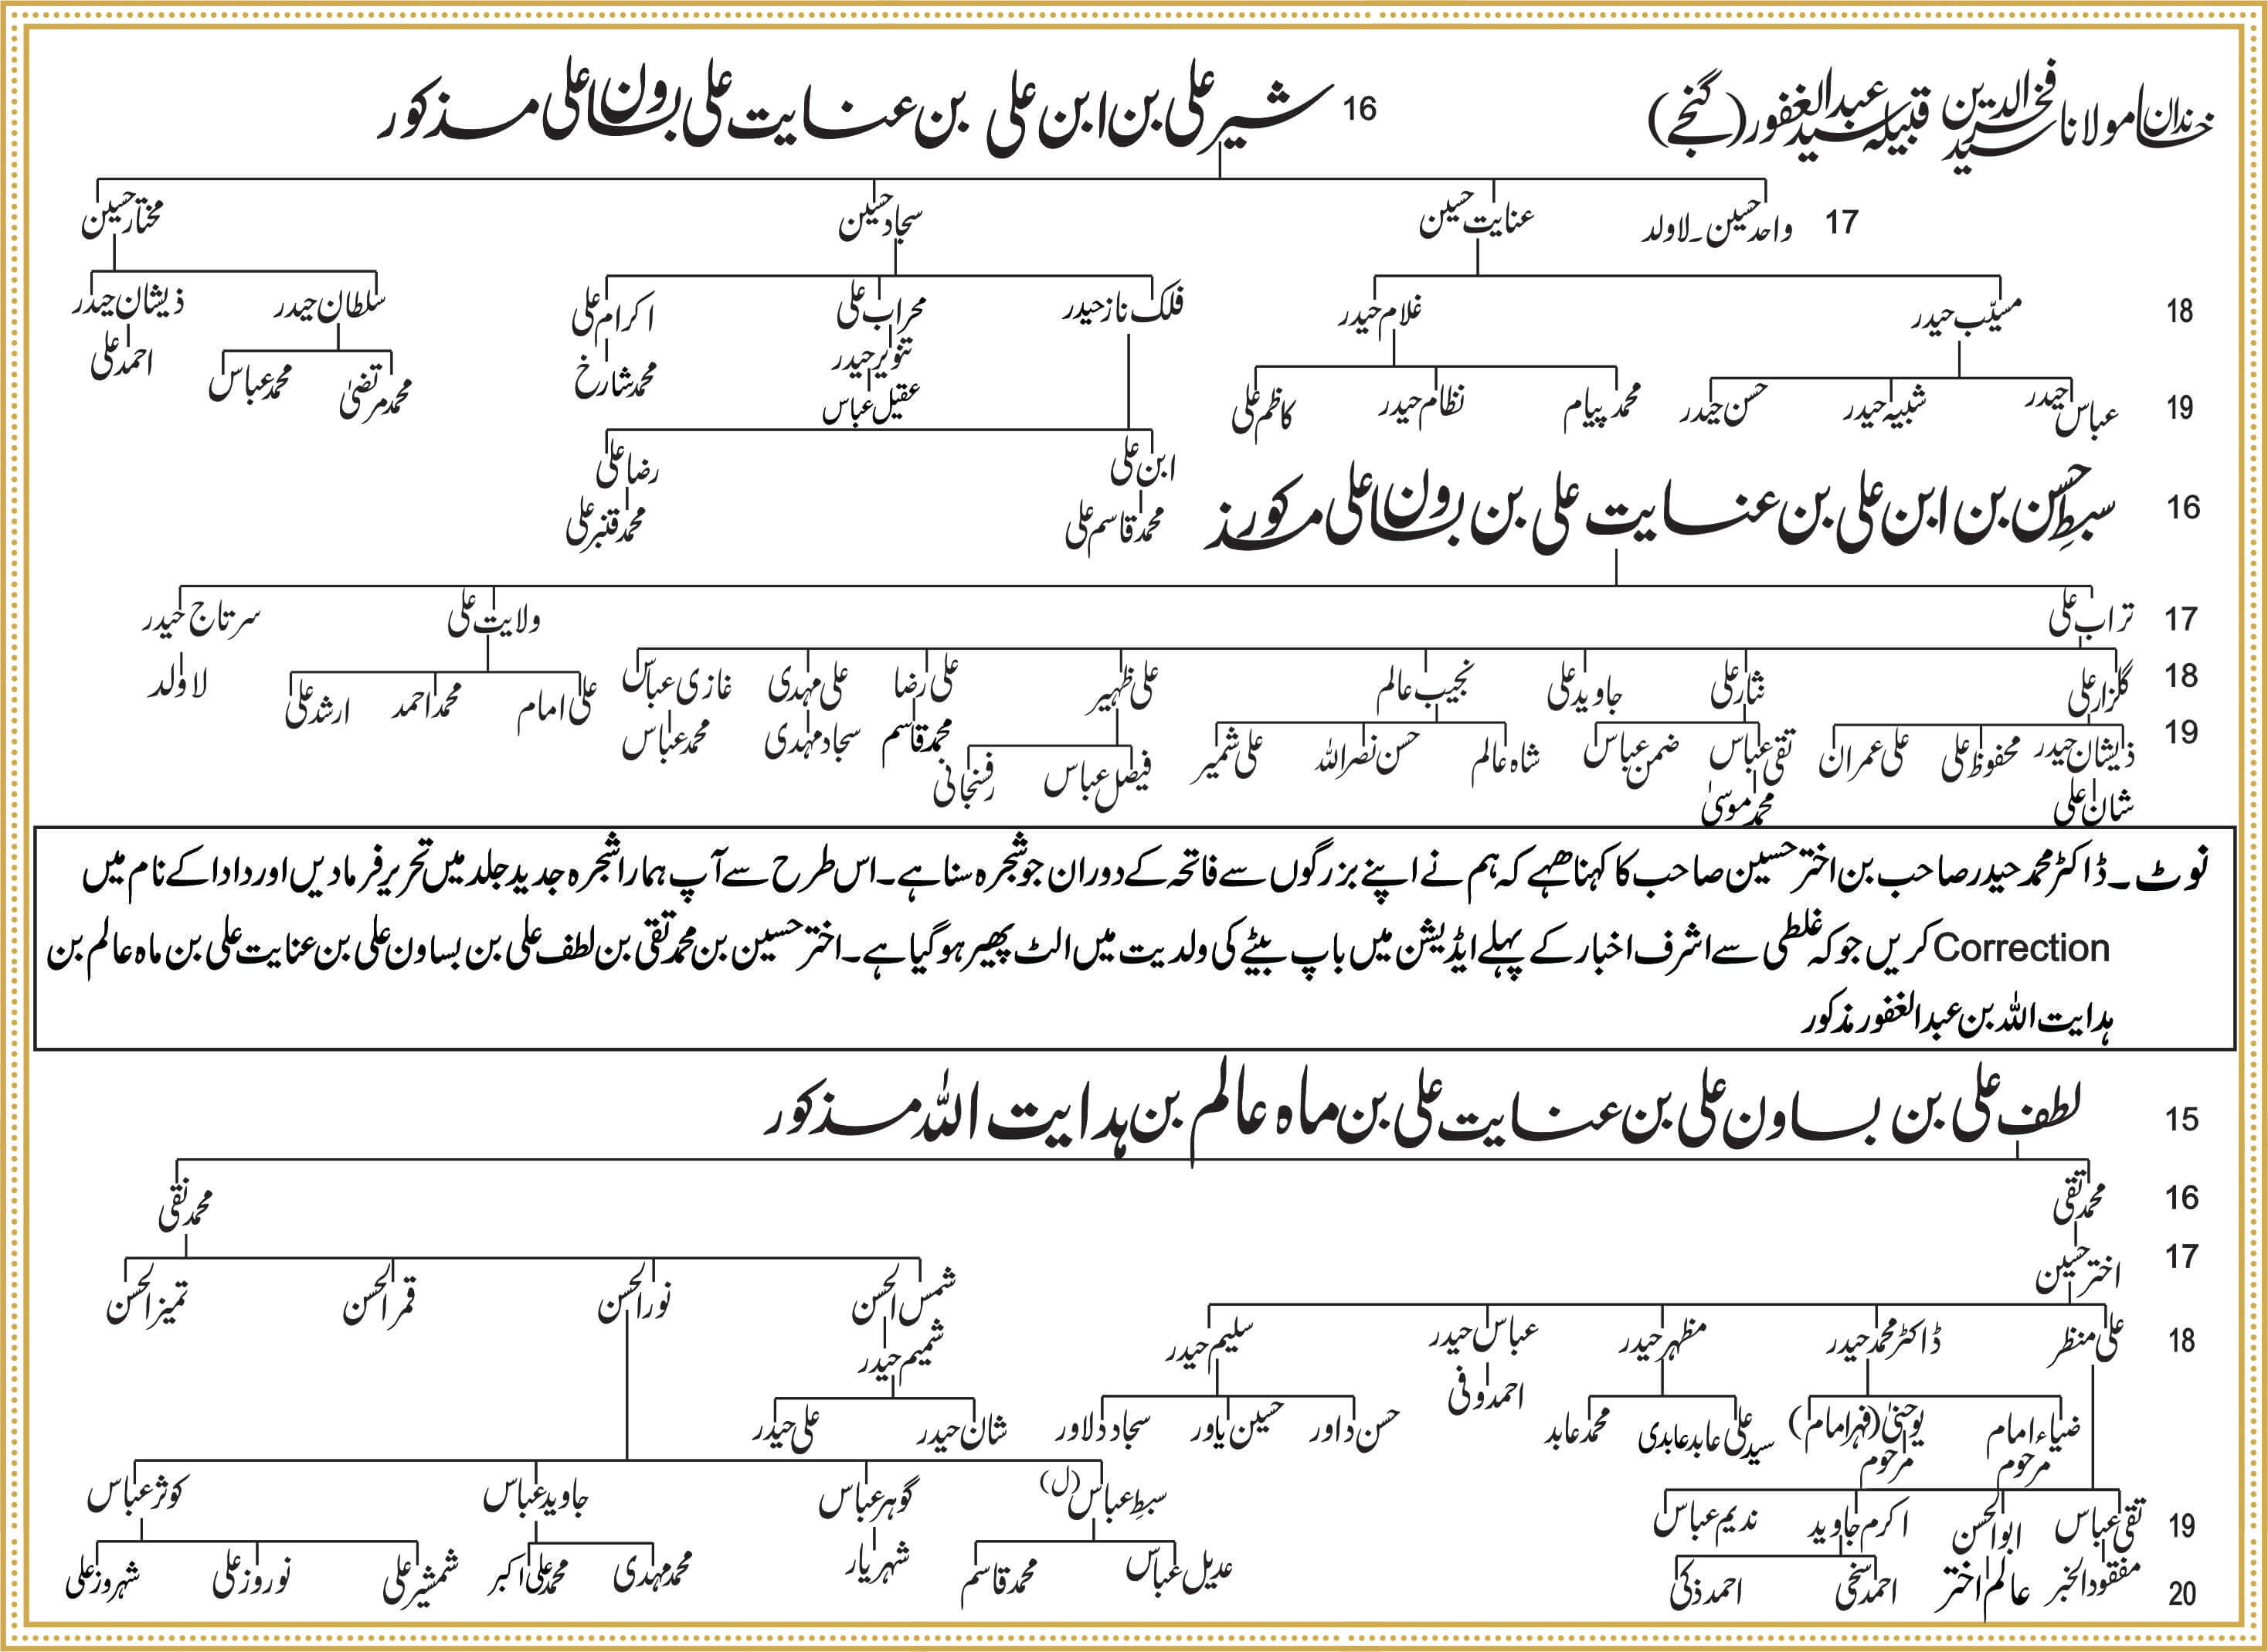 خاندان مولانا سید فخرالدین قبیلہ سید عبدالغفور (گنجے)
16 شیر علی بن ابن علی بن عنایت علی بن بساون علی مذکور
17 واحد حسین۔ لاولد عنایت حسین سجاد حسین مختار حسین
18 مسیّب حیدر غلام حیدر فلک ناز حیدر محراب علی اکرام علی سلطان حیدر ذیشان حیدر
تنویر حیدر احمد علی
19 عباس حیدر شبیہ حیدر حسن حیدر محمد پیام نظام حیدر کاظم علی عقیل عباس محمد شارخ محمد مرتضیٰ محمد عباس
ابن علی رضا علی
محمد قاسم علی محمد قنبر علی
16 سبطِ حسن بن ابن علی بن عنایت علی بن بساون علی مذکور
17 تراب علی ولایت علی سرتاج حیدر
18 گلزار علی نثار علی جاوید علی نجیب عالم علی ظہیر علی رضا علی مہدی غازی عباس علی امام محمد احمد ارشد علی لاولد
19 ذیشان حیدر محفوظ علی علی عمران تقی عباس ضمن عباس شاہ عالم حسن نصراللہ علی شمیر فیصل عباس رفسنجانی محمد قاسم سجاد مہدی محمد عباس
شان علی محمد موسیٰ
نوٹ۔ ڈاکٹر محمد حیدر صاحب بن اختر حسین صاحب کا کہنا ہے کہ ہم نے اپنے بزرگوں سے فاتحہ کے دوران جو شجرہ سنا ہے۔ اس طرح سے آپ ہمارا شجرہ جدید جلد میں تحریر فرمادیں اور دادا کے نام میں
Correction کریں جو کہ غلطی سے اشرف اخبار کے پہلے ایڈیشن میں باپ بیٹے کی ولدیت میں الٹ پھیر ہو گیا ہے۔ اختر حسین بن محمد تقی بن لطف علی بن بساون علی بن عنایت علی بن ماہ عالم بن
ہدایت اللہ بن عبدالغفور مذکور
15 لطف علی بن بساون علی بن عنایت علی بن ماہ عالم بن ہدایت اللہ مذکور
16 محمد تقی محمد نقی
17 اختر حسین شمس الحسن نورالحسن قمرالحسن تمیزالحسن
18 علی منظر ڈاکٹر محمد حیدر مظہر حیدر عباس حیدر سلیم حیدر شمیم حیدر
ضیاء امام مرحوم یوحنیٰ (فہر امام) مرحوم سید علی عابد عابدی محمد عابد احمد وفی حسن داور حسین یاور سجاد دلاور شان حیدر علی حیدر
19 تقی عباس ابوالحسن اکرم جاوید ندیم عباس سبطِ عباس (ل) گوہر عباس جاوید عباس کوثر عباس
20 مفقود الخبر عالم اختر احمد سخی احمد ذکی عدیل عباس محمد قاسم شہریار محمد مہدی محمد علی اکبر شمشیر علی نوروز علی شہروز علی